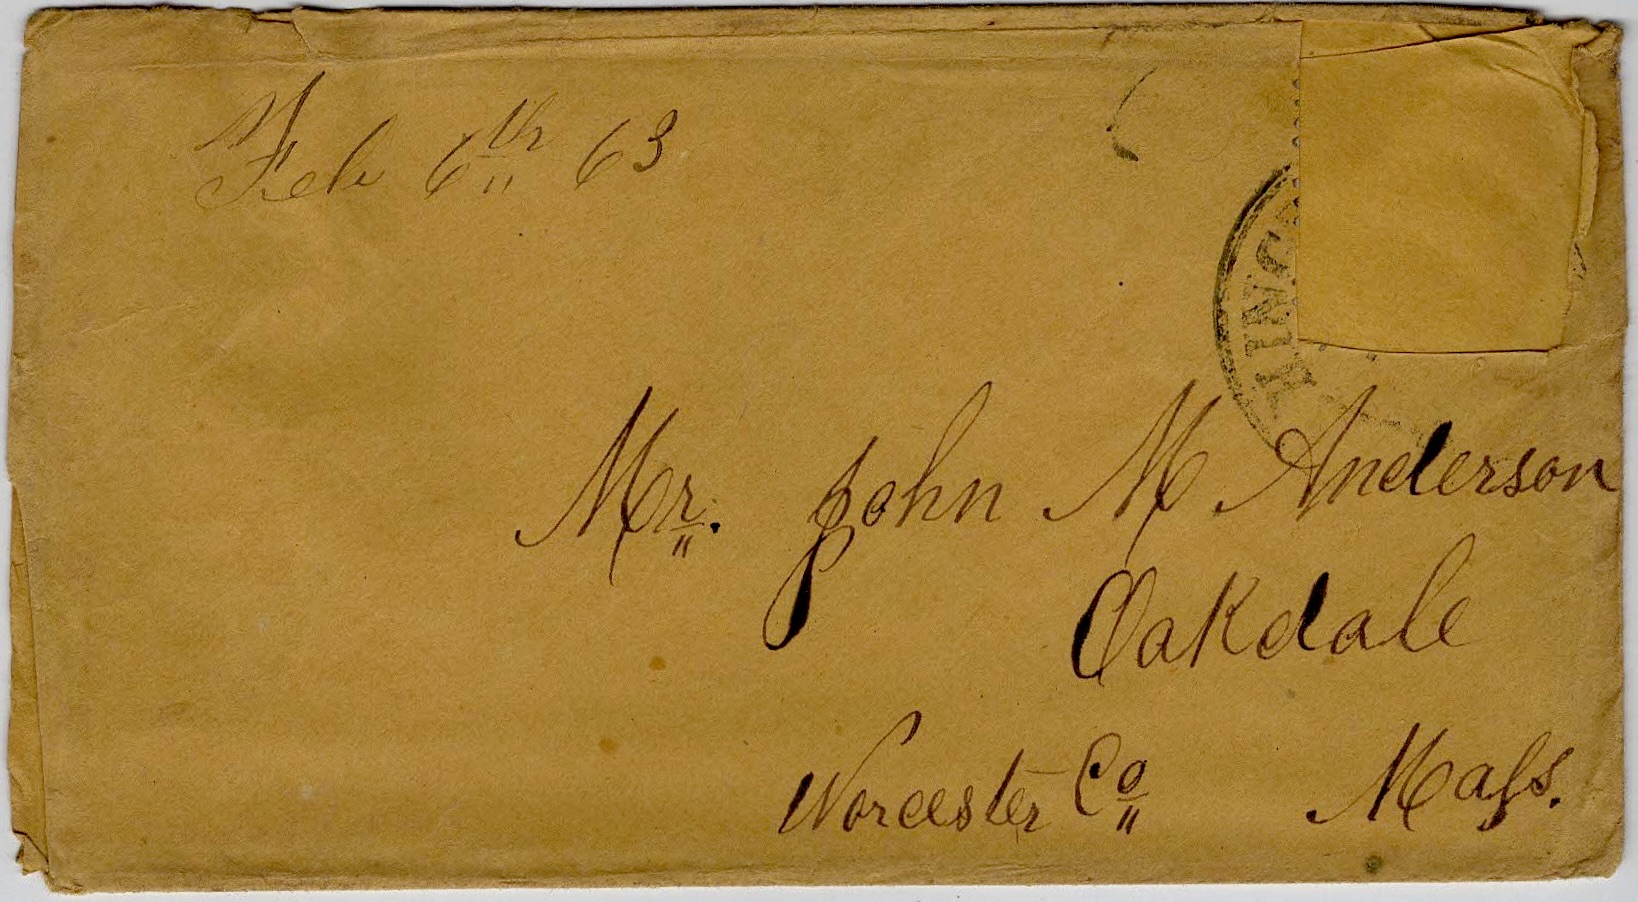 Feb 6th 63
Mr. John M Anderson
Oakdale
Worcester Co Mass.